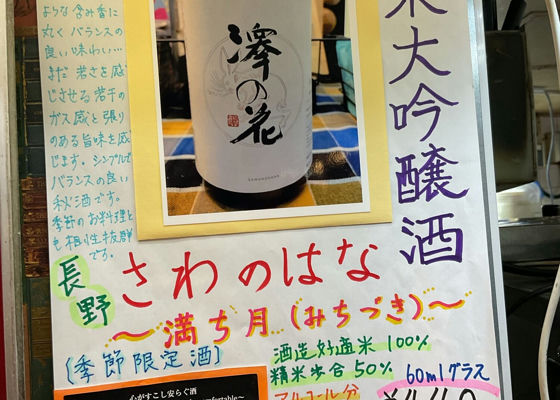 ような含み香に
丸くバランスの
良い味わい…
まだ若さを感
じさせる若干の
ガス感と張り
のある旨味を感
じます。シンプルで
バランスの良い
秋酒です。
季節のお料理と
も相性抜群
です。
澤の花
SAWANOHANA
米大吟醸酒
長野
さわのはな
～満ち月(みちづき)～
[季節限定酒]
酒造好適米 100%
精米歩合 50%
アルコール分
60mlグラス
心がすこし安らぐ酒